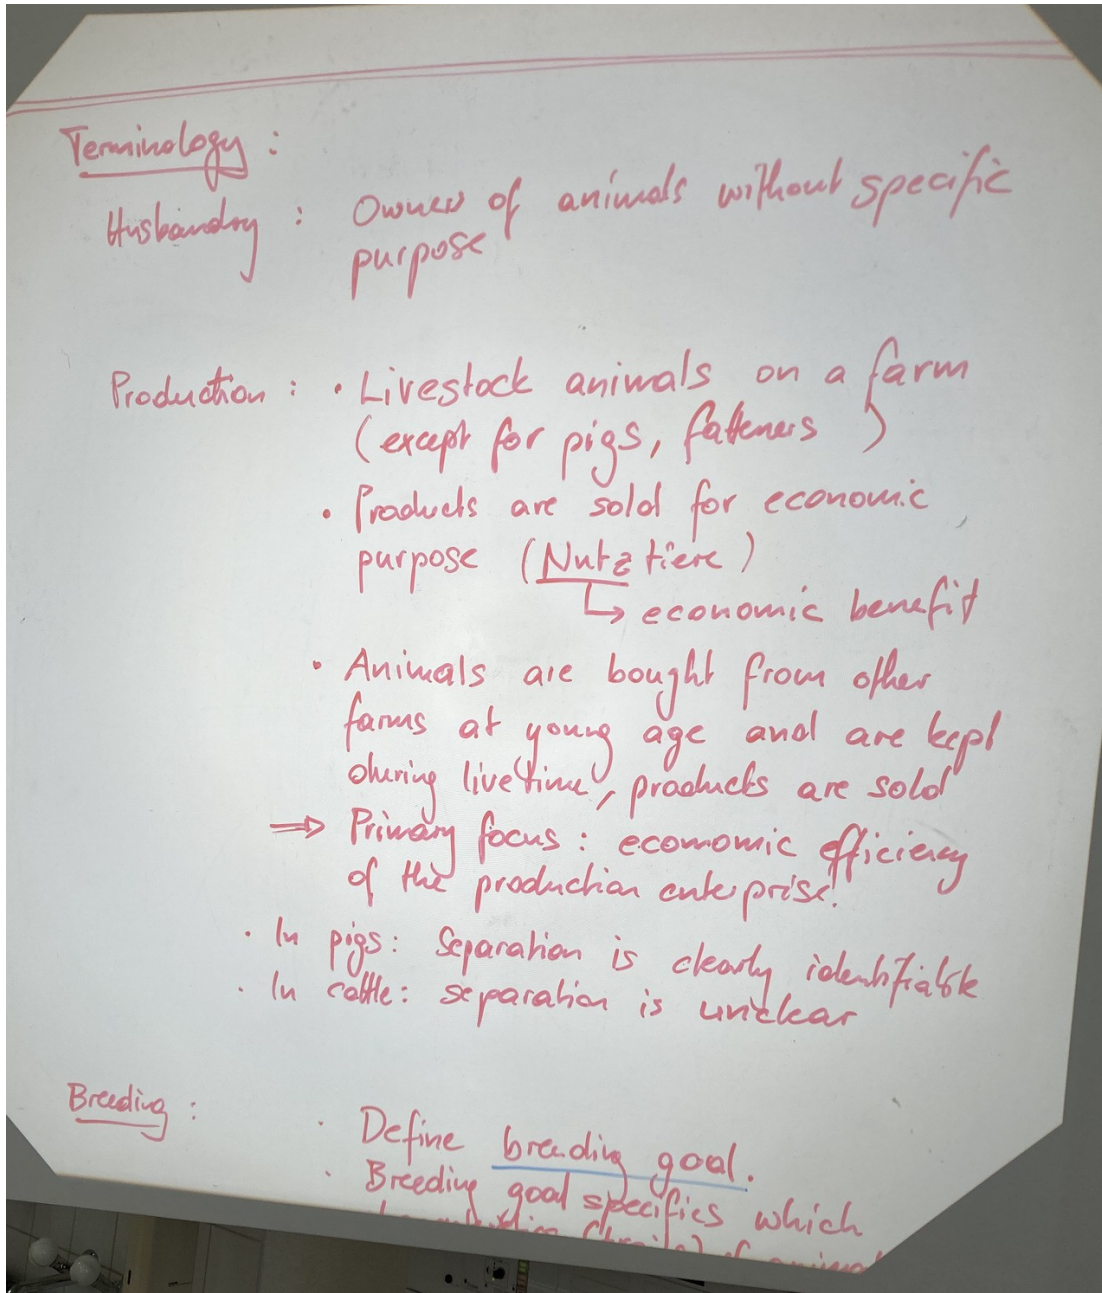 Terminology :
Husbandry : Owner of animals without specific
purpose
Production : • Livestock animals on a farm
(except for pigs, fatteners )
• Products are sold for economic
purpose (Nutztiere)
↳ economic benefit
• Animals are bought from other
farms at young age and are kept
during livetime, products are sold
⇒ Primary focus : economic efficiency
of the production enterprise!
• In pigs: Separation is clearly identifiable
• In cattle: separation is unclear
Breeding : • Define breeding goal.
• Breeding goal specifies which